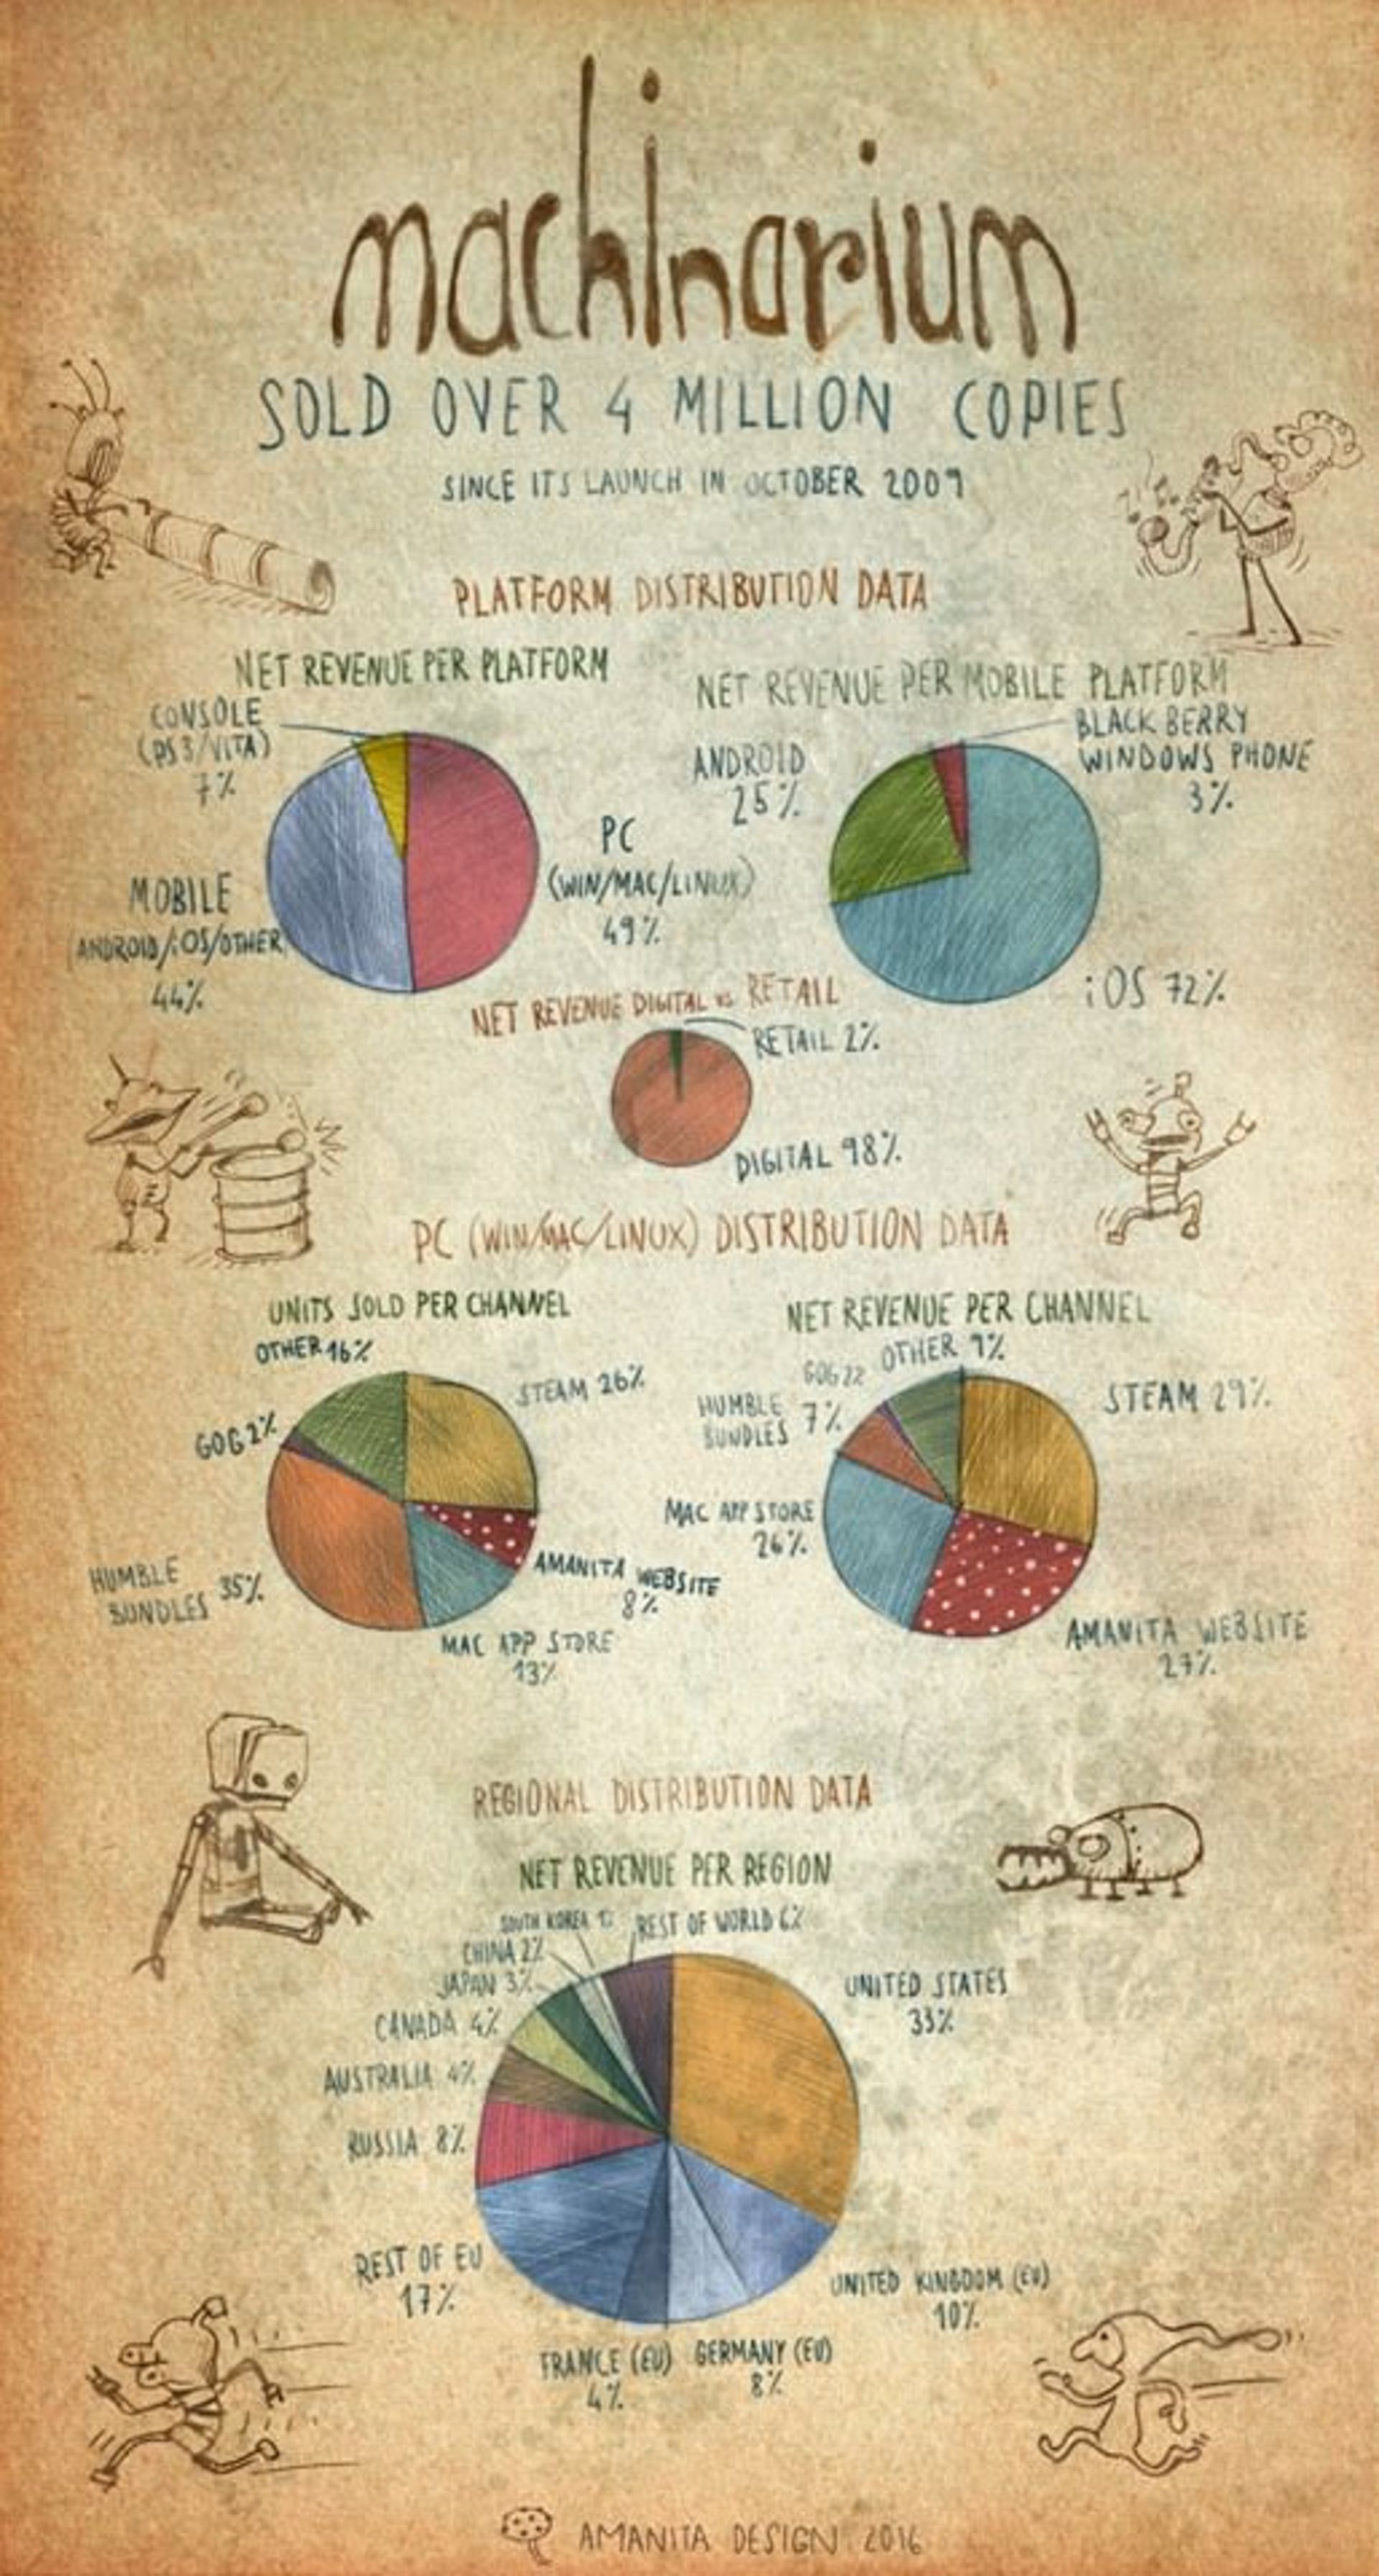 machinarium
SOLD OVER 4 MILLION COPIES
SINCE ITS LAUNCH IN OCTOBER 2009
PLATFORM DISTRIBUTION DATA
NET REVENUE PER PLATFORM
CONSOLE
(PS3/VITA)
7%
MOBILE
(ANDROID/iOS/OTHER)
44%
PC
(WIN/MAC/LINUX)
49%
NET REVENUE PER MOBILE PLATFORM
ANDROID
25%
BLACK BERRY
WINDOWS PHONE
3%
iOS 72%
NET REVENUE DIGITAL vs RETAIL
RETAIL 2%
DIGITAL 98%
PC (WIN/MAC/LINUX) DISTRIBUTION DATA
UNITS SOLD PER CHANNEL
OTHER 16%
STEAM 26%
GOG 2%
HUMBLE
BUNDLES 35%
AMANITA WEBSITE
8%
MAC APP STORE
13%
NET REVENUE PER CHANNEL
OTHER 9%
GOG 2%
HUMBLE
BUNDLES 7%
STEAM 29%
MAC APP STORE
26%
AMANITA WEBSITE
27%
REGIONAL DISTRIBUTION DATA
NET REVENUE PER REGION
SOUTH KOREA 1%
REST OF WORLD 6%
CHINA 2%
JAPAN 3%
CANADA 4%
AUSTRALIA 4%
RUSSIA 8%
UNITED STATES
33%
REST OF EU
17%
UNITED KINGDOM (EU)
10%
FRANCE (EU)
4%
GERMANY (EU)
8%
AMANITA DESIGN 2016